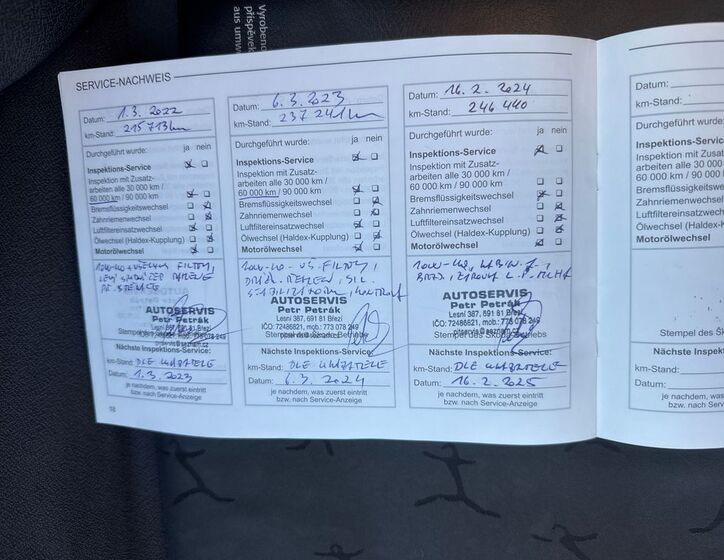 Vyrobeno
příspěvek
aus umw
SERVICE-NACHWEIS
Datum: 1.3. 2022
km-Stand: 215 713 km
Durchgeführt wurde: ja nein
Inspektions-Service
Inspektion mit Zusatz-
arbeiten alle 30 000 km /
60 000 km / 90 000 km
Bremsflüssigkeitswechsel
Zahnriemenwechsel
Luftfiltereinsatzwechsel
Ölwechsel (Haldex-Kupplung)
Motorölwechsel
FILTRY,
AUTOSERVIS
Petr Petrák
Lesní 387, 691 81 Březí
Nächste Inspektions-Service:
km-Stand:
Datum: 1.3. 2023
je nachdem, was zuerst eintritt
bzw. nach Service-Anzeige
58
Datum: 6.3. 2023
km-Stand: 237 241 km
Durchgeführt wurde: ja nein
Inspektions-Service
Inspektion mit Zusatz-
arbeiten alle 30 000 km /
60 000 km / 90 000 km
Bremsflüssigkeitswechsel
Zahnriemenwechsel
Luftfiltereinsatzwechsel
Ölwechsel (Haldex-Kupplung)
Motorölwechsel
FILTRY,
AUTOSERVIS
Petr Petrák
Lesní 387, 691 81 Březí
IČO: 72486821, mob.: 773 078 249
Nächste Inspektions-Service:
km-Stand:
Datum: 6.3. 2024
je nachdem, was zuerst eintritt
bzw. nach Service-Anzeige
Datum: 16.2. 2024
km-Stand: 246 440
Durchgeführt wurde: ja nein
Inspektions-Service
Inspektion mit Zusatz-
arbeiten alle 30 000 km /
60 000 km / 90 000 km
Bremsflüssigkeitswechsel
Zahnriemenwechsel
Luftfiltereinsatzwechsel
Ölwechsel (Haldex-Kupplung)
Motorölwechsel
AUTOSERVIS
Petr Petrák
Lesní 387, 691 81 Březí
IČO: 72486821, mob.: 773 078 249
Nächste Inspektions-Service:
km-Stand:
Datum: 16.2. 2025
je nachdem, was zuerst eintritt
bzw. nach Service-Anzeige
Datum:
km-Stand:
Durchgeführt wurde:
Inspektions-Service
Inspektion mit Zusatz-
arbeiten alle 30 000 km
60 000 km / 90 000 km
Bremsflüssigkeitswechsel
Zahnriemenwechsel
Luftfiltereinsatzwechsel
Ölwechsel (Haldex-
Motorölwechsel
Stempel des
Nächste Inspektion
km-Stand:
Datum:
je nachdem
bzw. nach